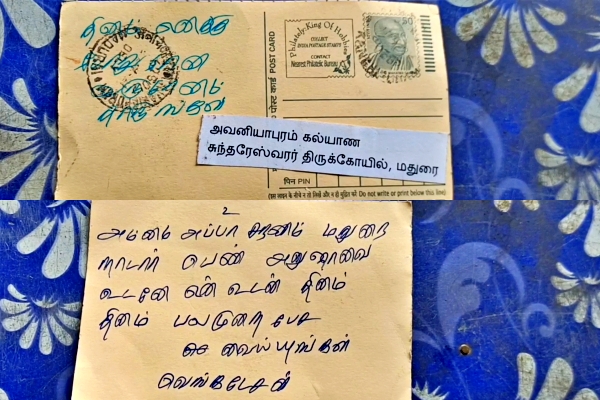 தினம் எனக்கு
தினம்
Philately, King Of Hobbies
COLLECT
INDIA POSTAGE STAMPS
CONTACT
Nearest Philatelic Bureau
50
पोस्ट कार्ड POST CARD
அவனியாபுரம் கல்யாண
சுந்தரேஸ்வரர் திருக்கோயில், மதுரை
पिन PIN
इस लाइन के नीचे न तो लिखें और न ही मुद्रित करें Do not write or print below this line
2
அம்மை அப்பா சரணம் மதுரை
நாடார் பெண் அனுஷாவை
உடனே என் உடன் தினம்
தினம் பலமுறை பேச
வைய்யுங்கள்
வெங்கடேசன்